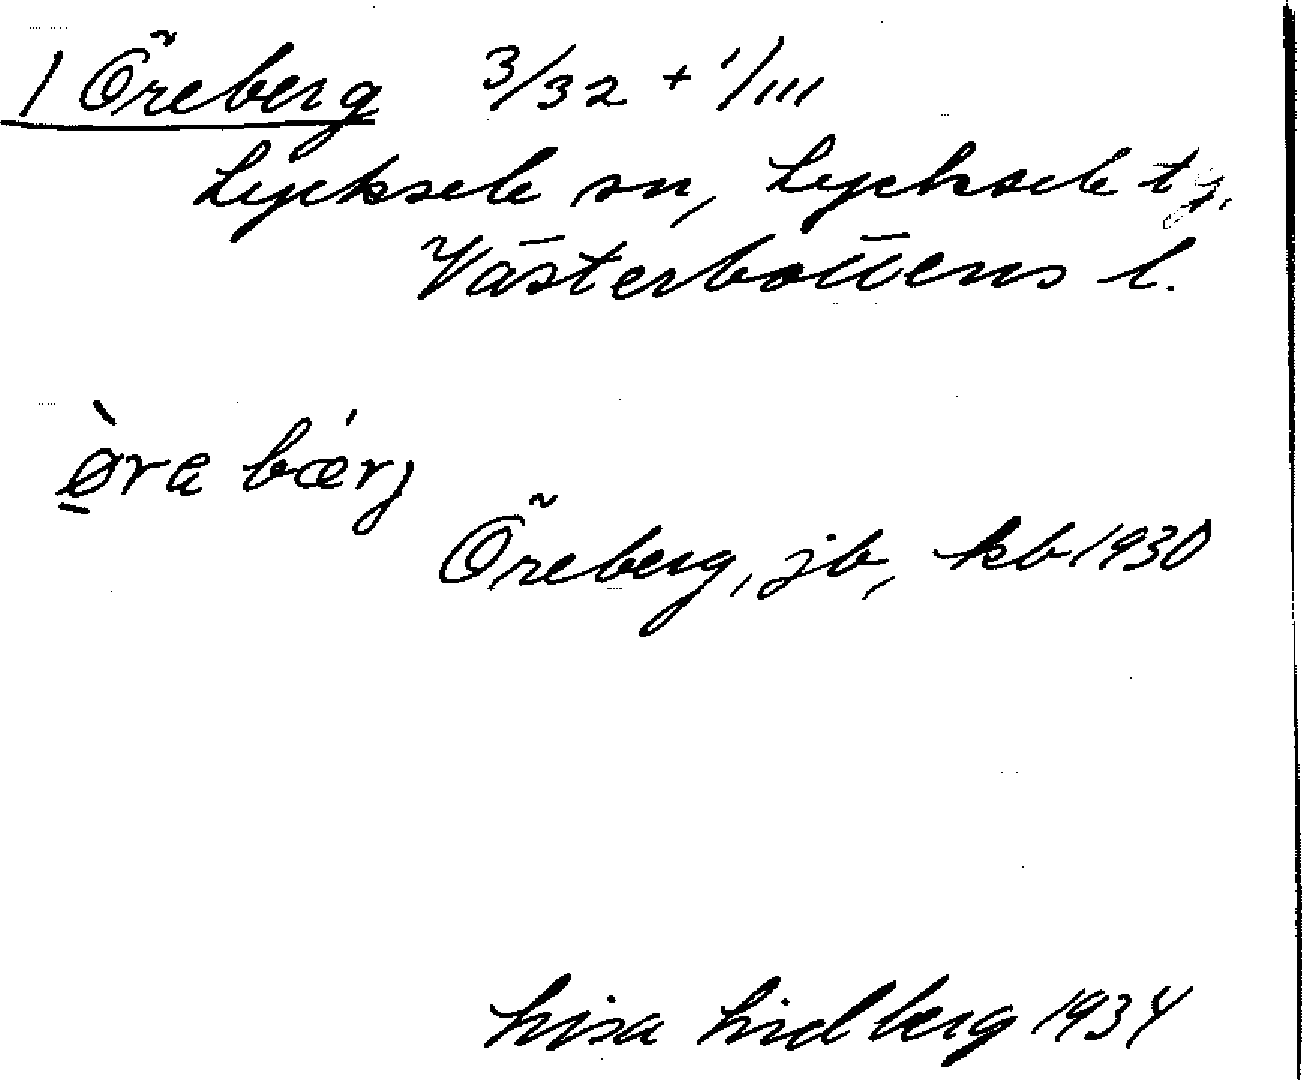 1 Öreberg 3/32 + 1/111
Lycksele sn, Lycksele tg.
Västerbottens l.
ø̠̀ra bǽrj
Öreberg, jb, kb 1930
Lisa Lidberg 1934